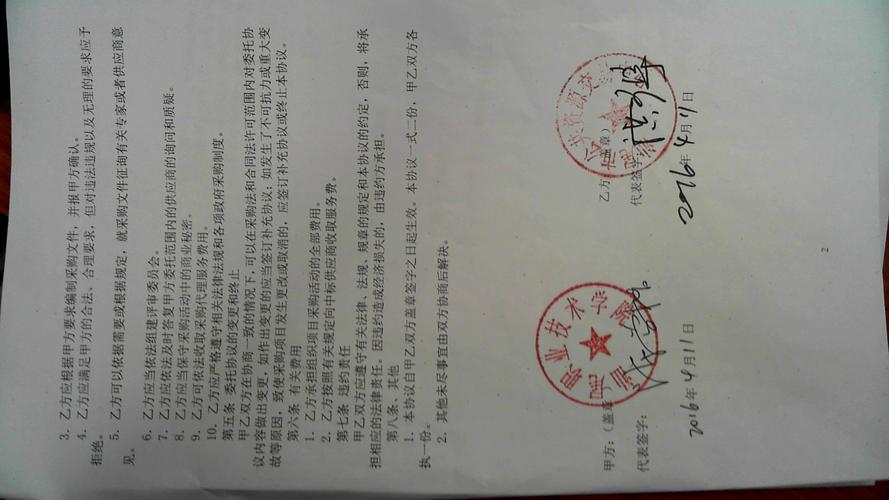 3. 乙方应根据甲方要求编制采购文件，并报甲方确认。
4. 乙方应满足甲方的合法、合理要求，但对违法违规以及无理的要求应予
拒绝。
5. 乙方可以依据需要或根据规定，就采购文件征询有关专家或者供应商意
见。
6. 乙方应当依法组建评审委员会。
7. 乙方应依法及时答复甲方委托范围内的供应商的询问和质疑。
8. 乙方应当保守采购活动中的商业秘密。
9. 乙方可依法收取采购代理服务费用。
10. 乙方应严格遵守相关法律法规和各项政府采购制度。
第五条 委托协议的变更和终止
甲乙双方在协商一致的情况下，可以在采购法和合同法许可范围内对委托协
议内容做出变更，如作出变更的应当签订补充协议；如发生了不可抗力或重大变
故等原因，致使采购项目发生更改或取消的，应签订补充协议或终止本协议。
第六条 有关费用
1. 乙方承担组织项目采购活动的全部费用。
2. 乙方按照有关规定向中标供应商收取服务费。
第七条 违约责任
甲乙双方应遵守有关法律、法规、规章的规定和本协议的约定，否则，将承
担相应的法律责任。因违约造成经济损失的，由违约方承担。
第八条、其他
1. 本协议自甲乙双方盖章签字之日起生效。本协议一式二份，甲乙双方各
执一份。
2. 其他未尽事宜由双方协商后解决。
甲方：（盖章 乙方：（盖章）
职业技术
公共资源交
代表签字： 代表签字：
2016年4月11日 2016年4月11日
2